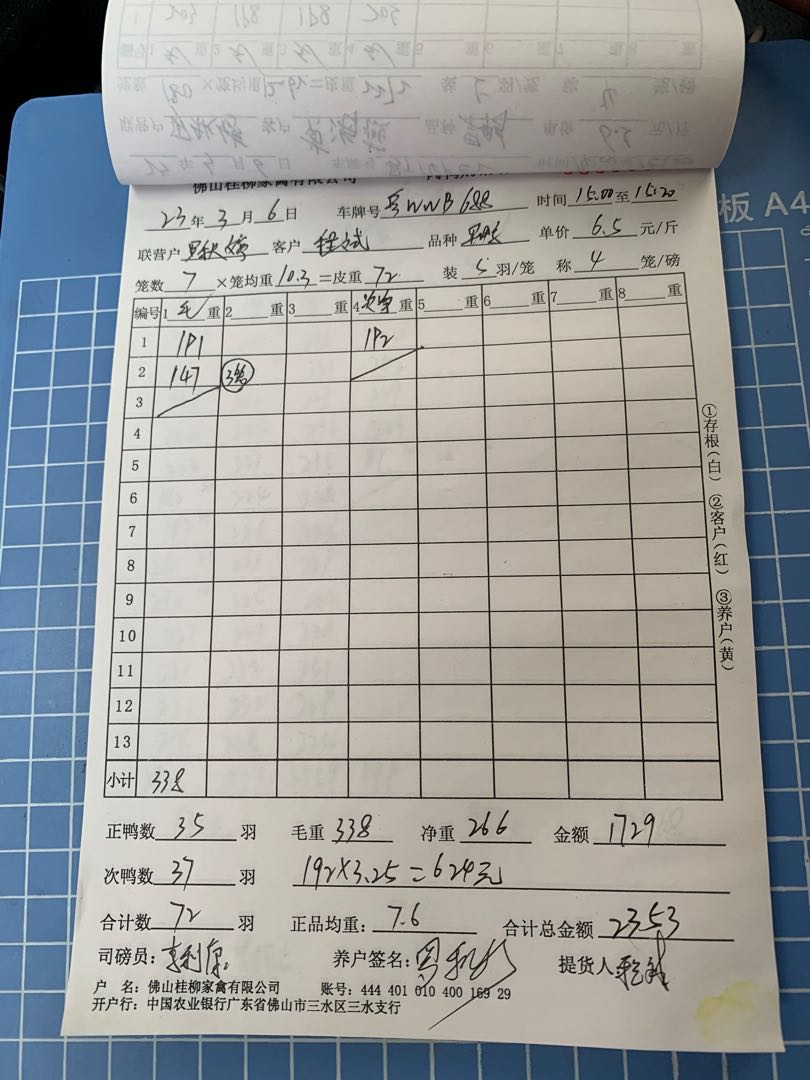 佛山桂柳家禽有限公司
23年3月6日 车牌号 WWB688 时间 15:00至15:20
联营户 客户 程斌 品种 单价 6.5 元/斤
笼数 7 ×笼均重 10.3 =皮重 72 装 5 羽/笼 称 4 笼/磅
编号 1 毛 重 2 重 3 重 4 次净 重 5 重 6 重 7 重 8 重
1 191 192
2 147 3笼
3
4
5
6
7
8
9
10
11
12
13
小计 338
正鸭数 35 羽 毛重 338 净重 266 金额 1729
次鸭数 37 羽 192×3.25=624元
合计数 72 羽 正品均重: 7.6 合计总金额 2353
司磅员: 养户签名: 提货人
户 名: 佛山桂柳家禽有限公司 账号: 444 401 010 400 169 29
开户行: 中国农业银行广东省佛山市三水区三水支行
①存根(白) ②客户(红) ③养户(黄)
板 A4